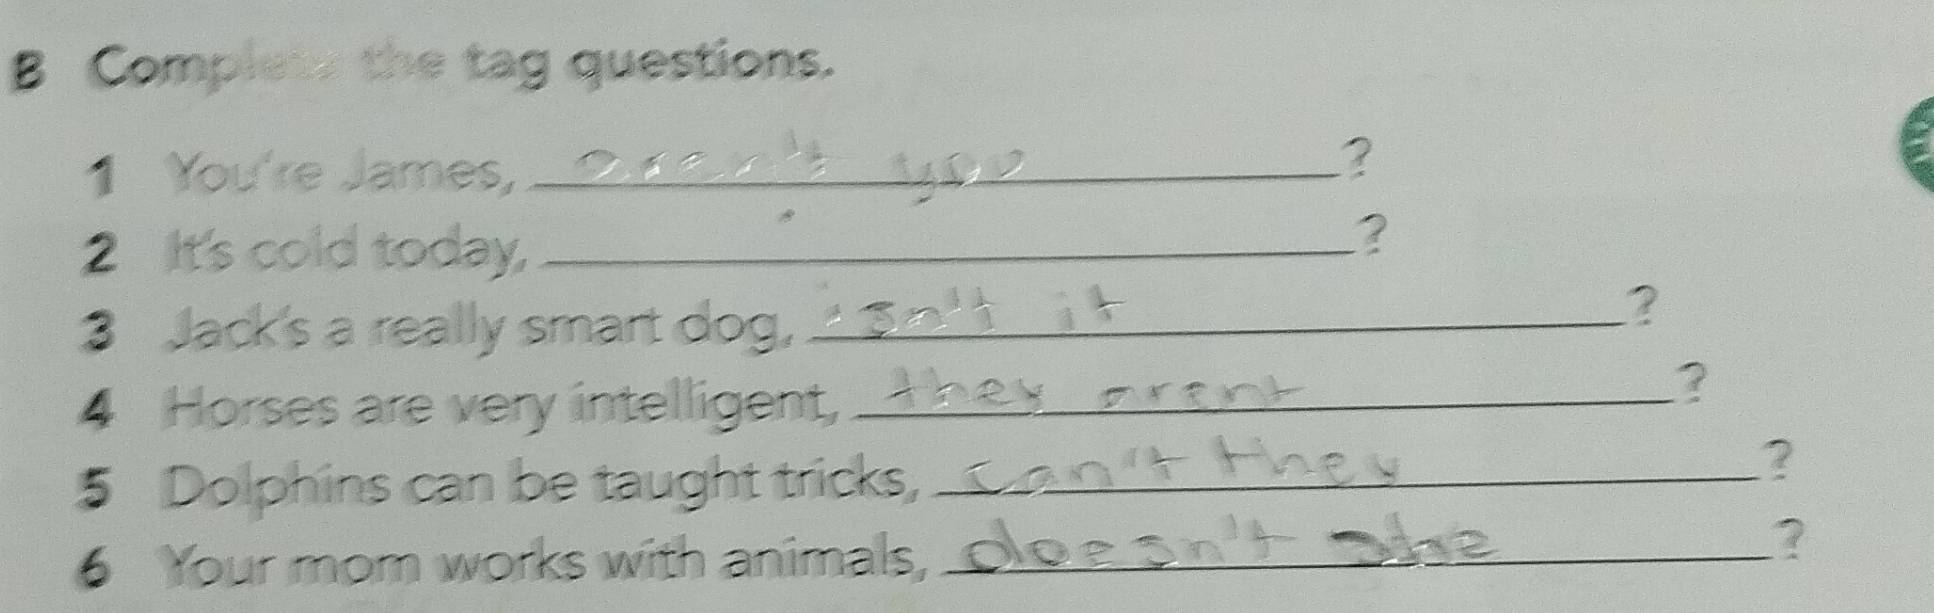 B Complete the tag questions.
1 You're James, aren't you ?
2 It's cold today, ?
3 Jack's a really smart dog, isn't it ?
4 Horses are very intelligent, they arent ?
5 Dolphins can be taught tricks, can't they ?
6 Your mom works with animals, doesn't she ?